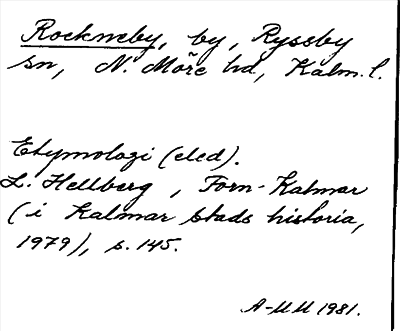 Rockneby, by, Ryssby
sn, N. Möre hd, Kalm. l.
Etymologi (eled).
L. Hellberg, Forn-Kalmar
(i Kalmar stads historia,
1979), s. 145.
A-MM 1981.